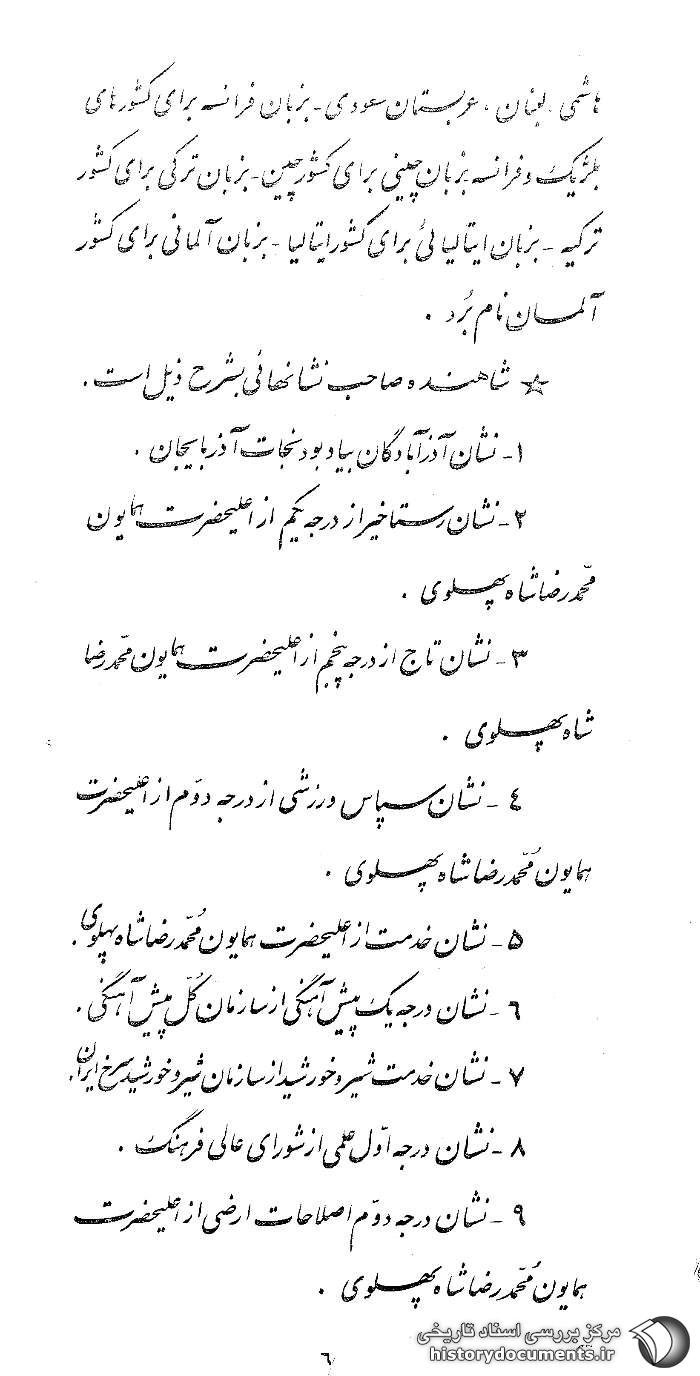 هاشمی، لبنان، عربستان سعودی - بزبان فرانسه برای کشورهای
بلژیک و فرانسه بزبان چینی برای کشور چین - بزبان ترکی برای کشور
ترکیه - بزبان ایتالیائی برای کشور ایتالیا - بزبان آلمانی برای کشور
آلمان نام بُرد .
☆ شاهنده صاحب نشانهائی بشرح ذیل است .
۱- نشان آذرآبادگان بیادبود نجات آذربایجان .
۲- نشان رستاخیز از درجه یکم از اعلیحضرت همایون
محمّدرضا شاه پهلوی .
۳- نشان تاج از درجه پنجم از اعلیحضرت همایون محمّدرضا
شاه پهلوی .
٤ - نشان سپاس ورزشی از درجه دوّم از اعلیحضرت
همایون مُحمّدرضا شاه پهلوی .
۵- نشان خدمت از اعلیحضرت همایون مُحمّدرضا شاه پهلوی .
٦ - نشان درجه یک پیش آهنگی از سازمان کُلّ پیش آهنگی .
۷- نشان خدمت شیر و خورشید از سازمان شیر و خورشید سرخ ایران .
۸- نشان درجه اوّل علمی از شورای عالی فرهنگ .
۹ - نشان درجه دوّم اصلاحات ارضی از اعلیحضرت
همایون مُحمّدرضا شاه پهلوی .
مرکز بررسی اسناد تاریخی
historydocuments.ir
٦